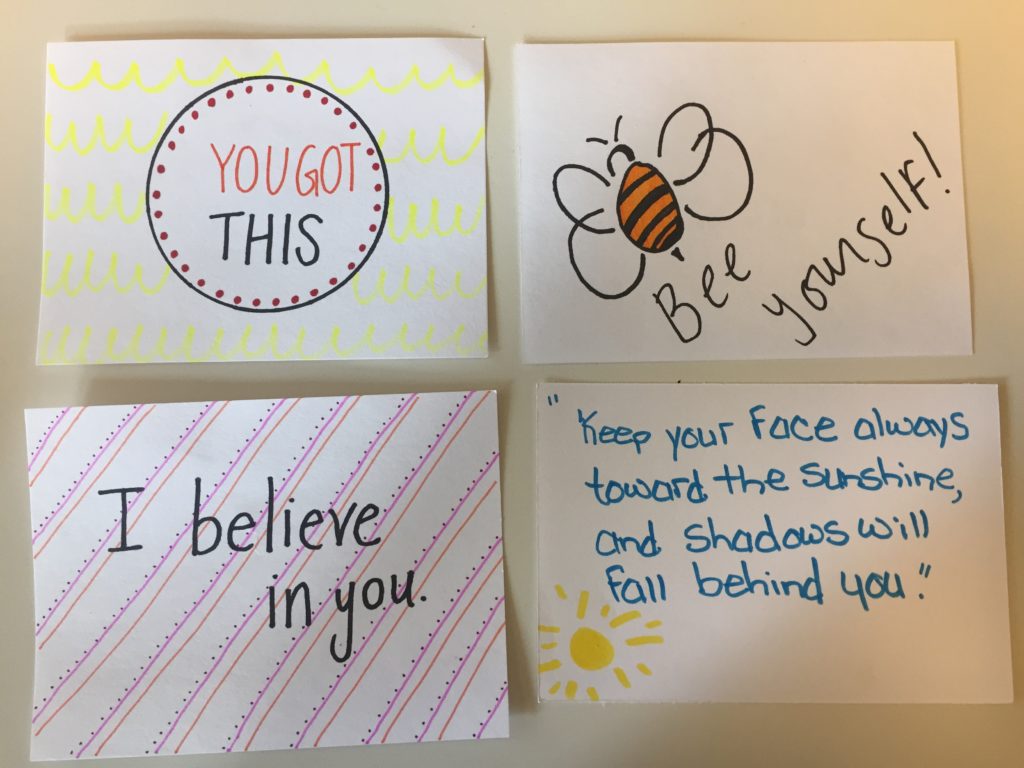 YOU GOT
THIS
Bee
yourself!
I believe
in you.
"Keep your Face always
toward the sunshine,
and shadows will
fall behind you."